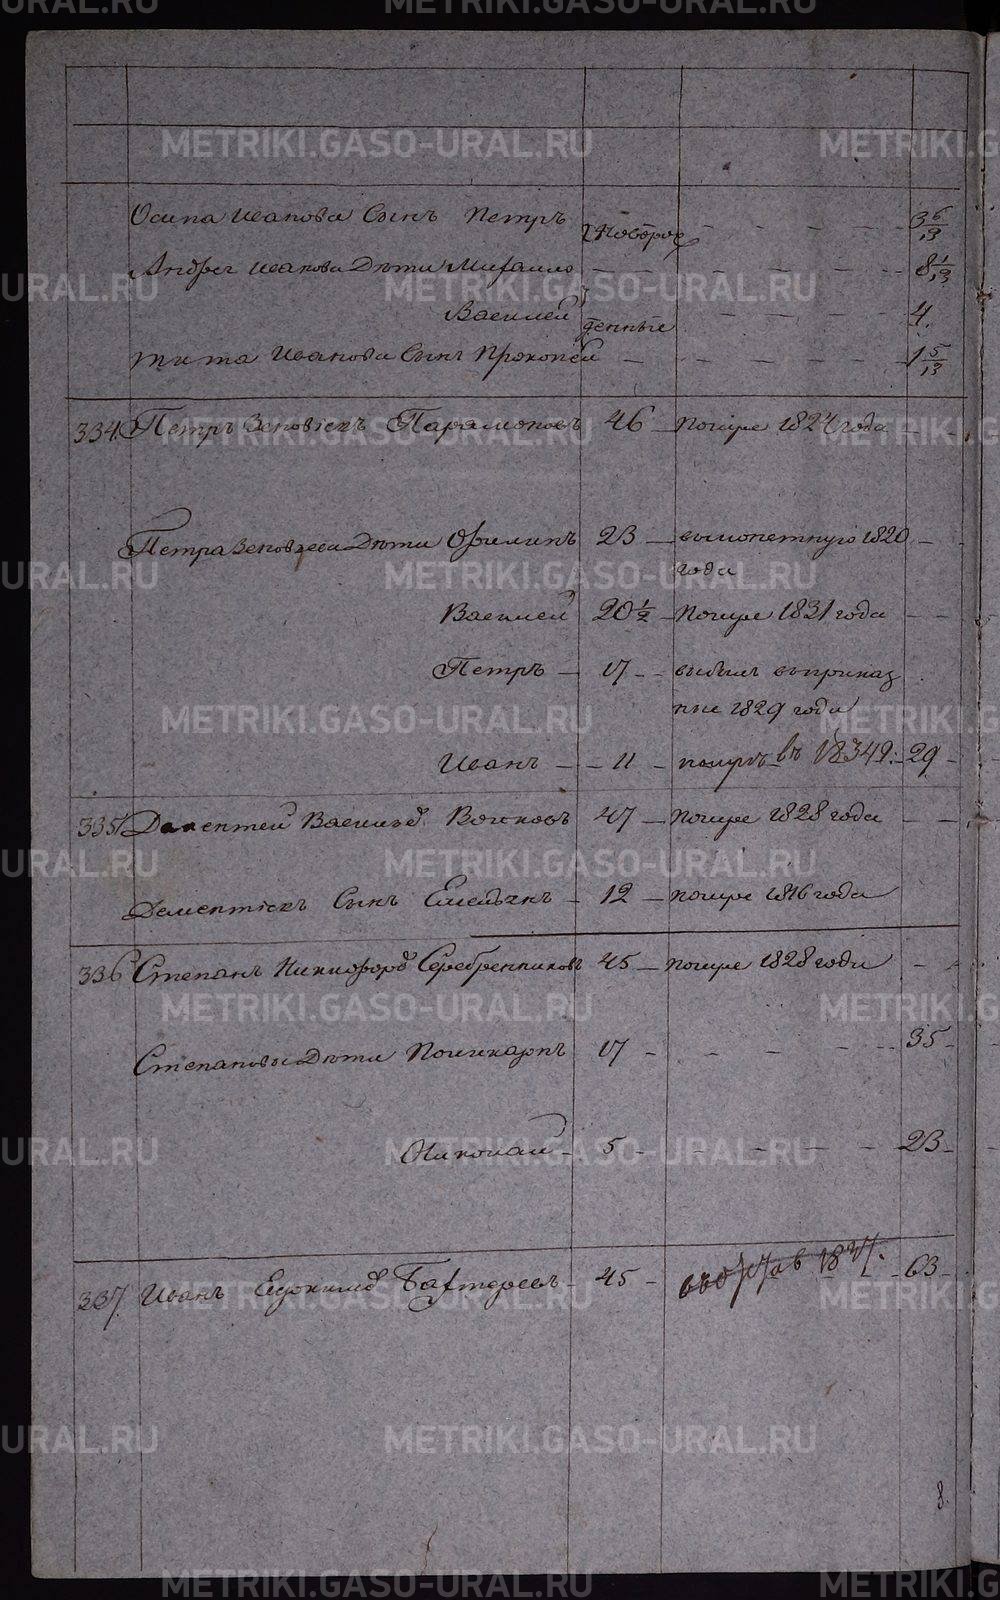 Осипа Иванова Сынъ Петръ новорож 3 6/13
Андрея Иванова Дѣти Михайло 8 1/13
Василей денные 4.
Тита Иванова Сынъ Прокопей 1 5/13
334. Петръ Зеновіевъ Парамоновъ 46 помре 1824 года
Петра Зеновьева Дѣти Филипъ 23 1820
года
Василей 20 1/2 помре 1831 года
Петръ 17 выбылъ въ приказ
ные 1829 года
Иванъ 11 въ 29
335. Дементей Васильев 47 помре 1828 года
Дементьевъ Сынъ Емельянъ 12 помре 1816 года
336 Степанъ Никифоров Серебренниковъ 45 помре 1828 года
Степановы Дѣти Поликарпъ 17 35
Николай 5 23
337. Иванъ Евдокимов 45 1837. 63
8.
METRIKI.GASO-URAL.RU